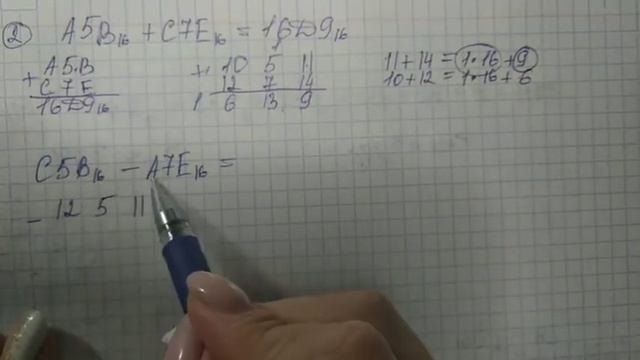 2 A5B₁₆ + C7E₁₆ = 16D9₁₆
+ A5B
C7E
16D9₁₆
+ 10 5 11
12 7 14
1 6 13 9
11+14 = 1·16+9
10+12 = 1·16+6
C5B₁₆ − A7E₁₆ =
− 12 5 11